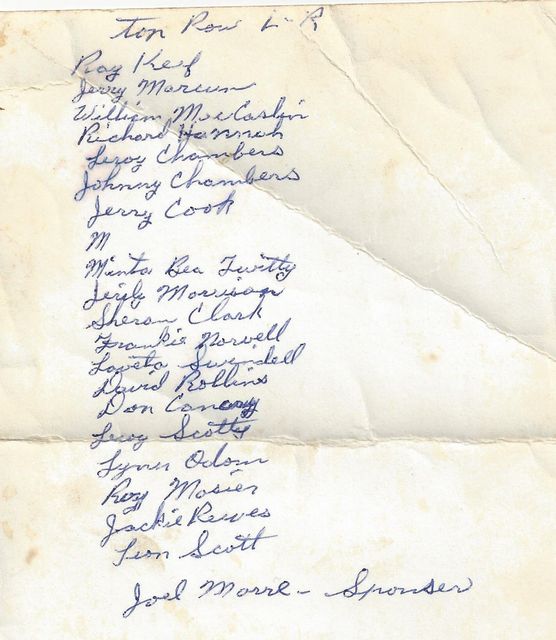 top Row L-R
Roy Keef
Jerry Marcum
William MacCaslin
Richard Hannah
Leroy Chambers
Johnny Chambers
Jerry Cook
M
Minta Bea Twitty
Morrison
Sharon Clark
Frankie Norvell
Loveta Swindell
David Rollins
Don Canary
Leroy Scotty
Lynn Odom
Roy Mosier
Jackie Reeves
Leon Scott
Joel Morre - Sponser